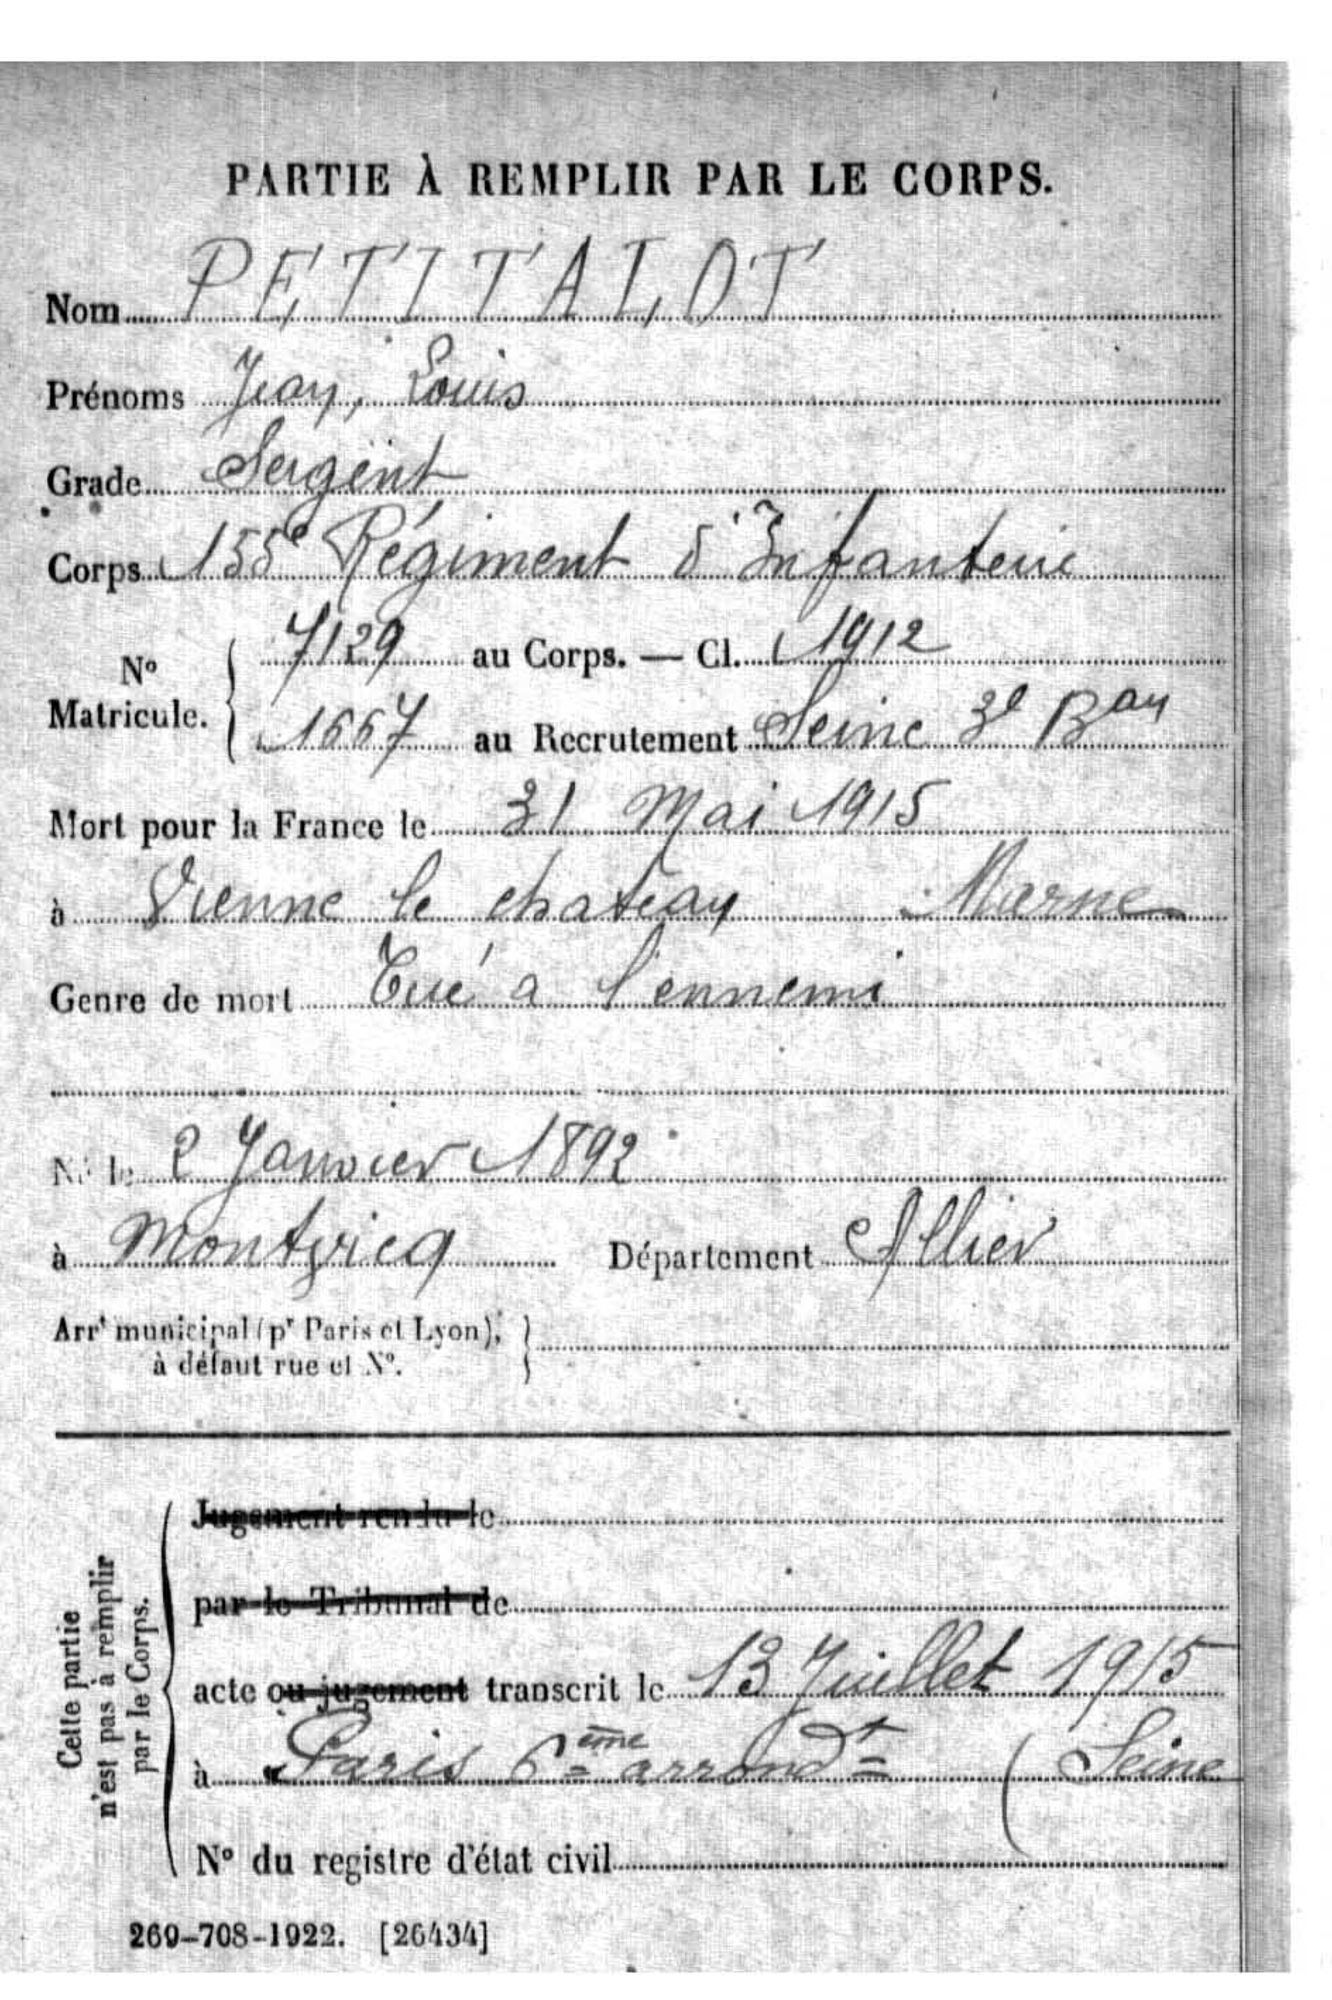 PARTIE À REMPLIR PAR LE CORPS.
Nom PETITALOT
Prénoms Jean, Louis
Grade Sergent
Corps 155e Régiment d'Infanterie
N° Matricule. { 7129 au Corps. — Cl. 1912
1667 au Recrutement Seine 3e Bau
Mort pour la France le 31 Mai 1915
à Vienne le chateau Marne
Genre de mort Tué à l'ennemi
Né le 2 Janvier 1892
à Montvicq Département Allier
Arrt municipal (pr Paris et Lyon), }
à défaut rue et N°.
Cette partie
n'est pas à remplir
par le Corps.
Jugement rendu le
par le Tribunal de
acte ou jugement transcrit le 13 Juillet 1915
à Paris 6ème arrondt (Seine
N° du registre d'état civil
269-708-1922. [26434]